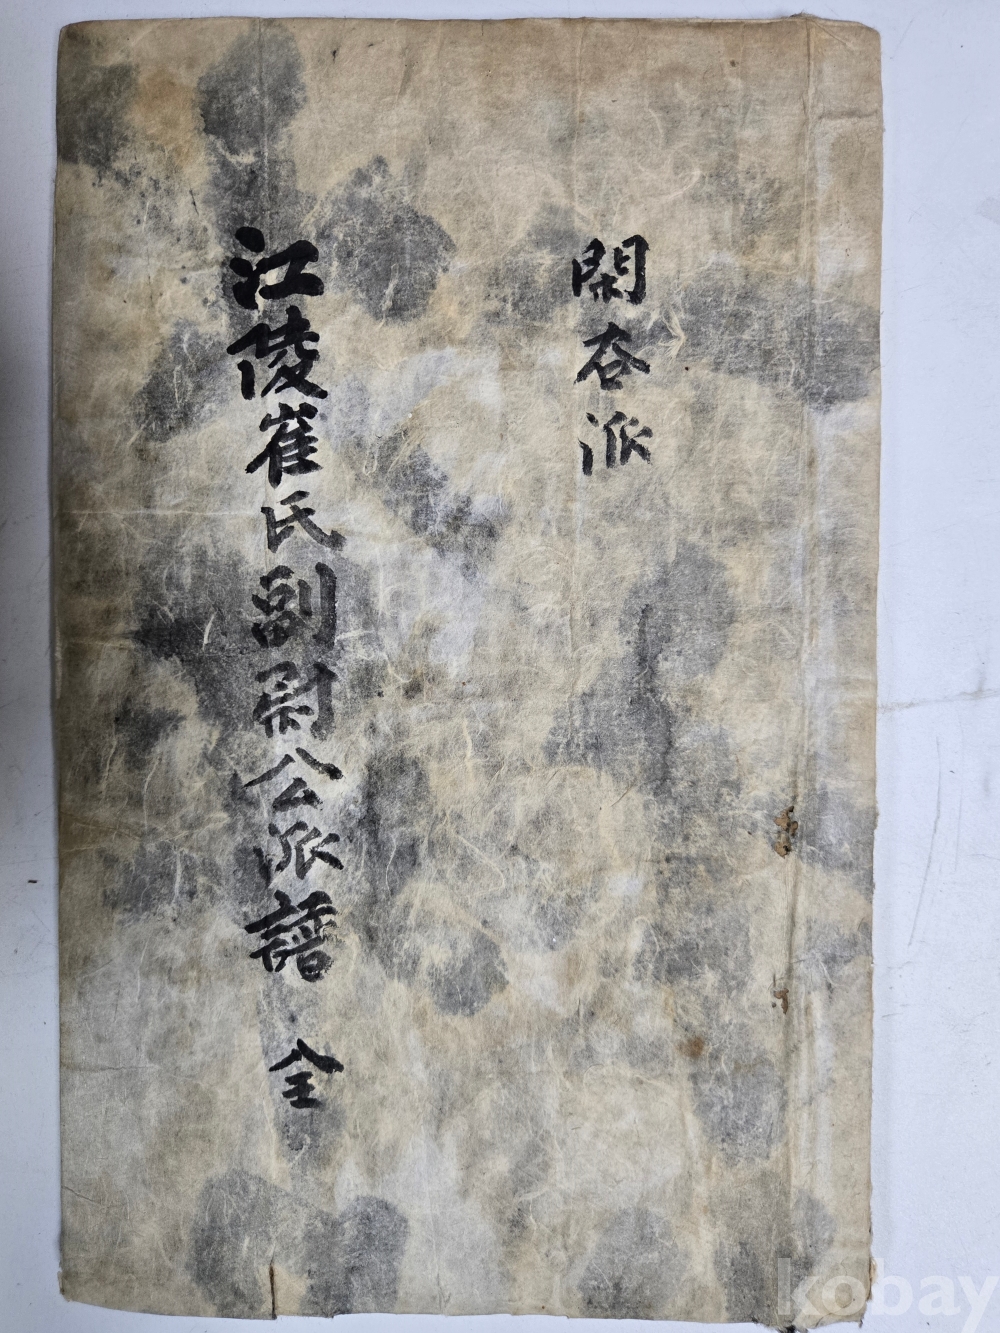 閑谷派
江陵崔氏副尉公派譜 全
kobay